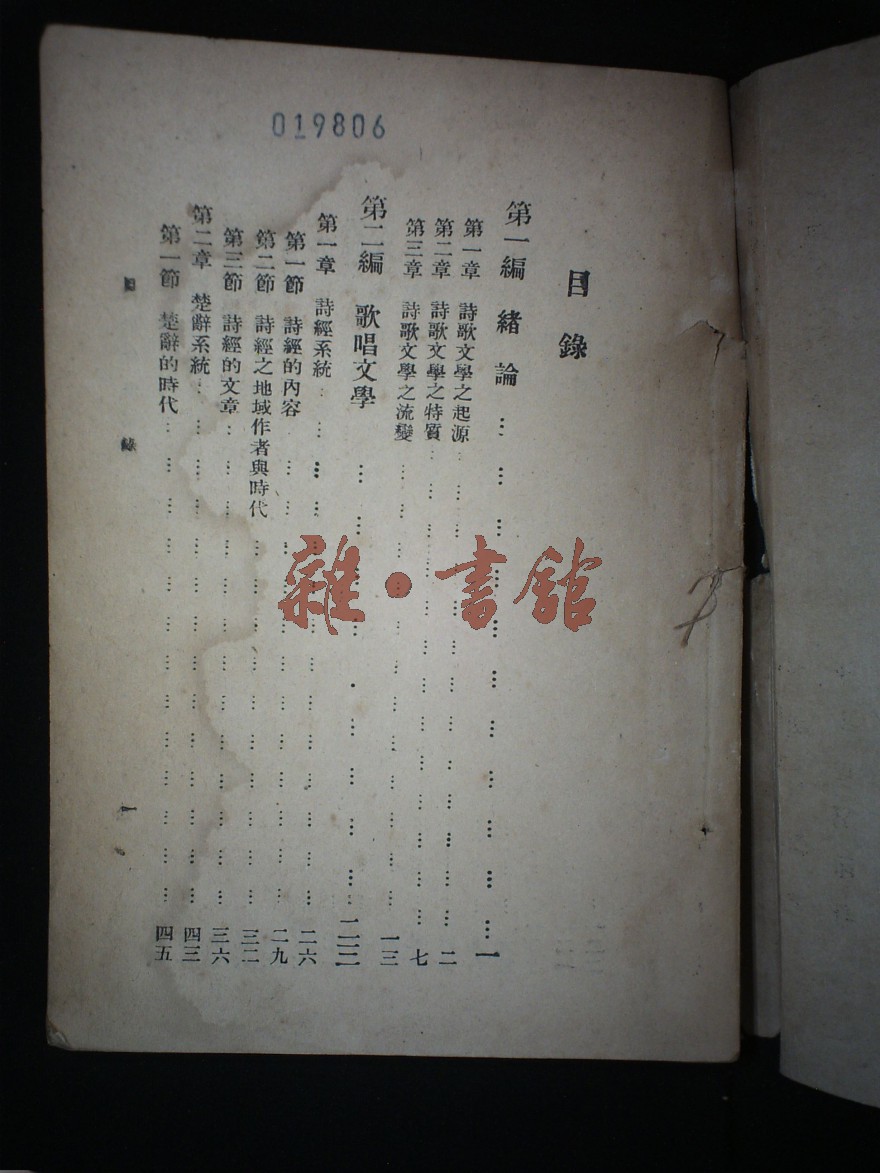 019806
目錄
第一編 緒論 … … … … … … … … … … 一
第一章 詩歌文學之起源 … … … … … … … … … … 二
第二章 詩歌文學之特質 … … … … … … … … … … 七
第三章 詩歌文學之流變 … … … … … … … … … … 一三
第二編 歌唱文學 … … … … … … … …
第一章 詩經系統 … … … … … … … … … … 二六
第一節 詩經的內容 … … … … … … … … … … 二九
第二節 詩經之地域作者與時代 … … … … … … … … 三二
第三節 詩經的文章 … … … … … … … … … … 三六
第二章 楚辭系統 … … … … … … … … … … 四三
第一節 楚辭的時代 … … … … … … … … … … 四五
目錄 一
雜·書館